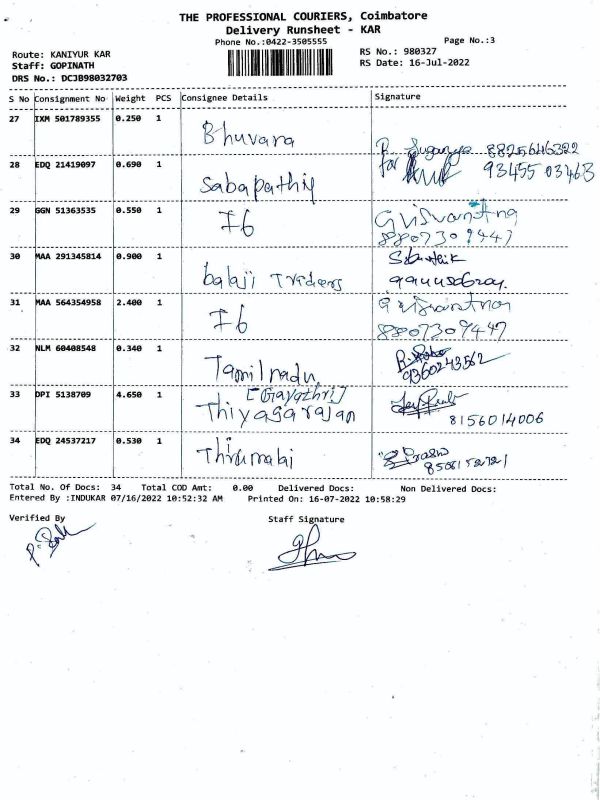 THE PROFESSIONAL COURIERS, Coimbatore
Delivery Runsheet - KAR
Phone No.:0422-3505555 Page No.:3
Route: KANIYUR KAR RS No.: 980327
Staff: GOPINATH RS Date: 16-Jul-2022
DRS No.: DCJB98032703
S No Consignment No Weight PCS Consignee Details Signature
27 IXM 501789355 0.250 1 Bhuvana
8825646322
28 EDQ 21419097 0.690 1 Sabapathy for 93455 03463
29 GGN 51363535 0.550 1 I6 G Viswanathna
8807309447
30 MAA 291345814 0.900 1 balaji Traders
31 MAA 564354958 2.400 1 I6
8807309447
32 NLM 60408548 0.340 1 Tamilnadu 9360243562
33 DPI 5138709 4.650 1 [Gayathri]
Thiyagarajan 8156014006
34 EDQ 24537217 0.530 1 Thirumalai
Total No. Of Docs: 34 Total COD Amt: 0.00 Delivered Docs: Non Delivered Docs:
Entered By :INDUKAR 07/16/2022 10:52:32 AM Printed On: 16-07-2022 10:58:29
Verified By Staff Signature